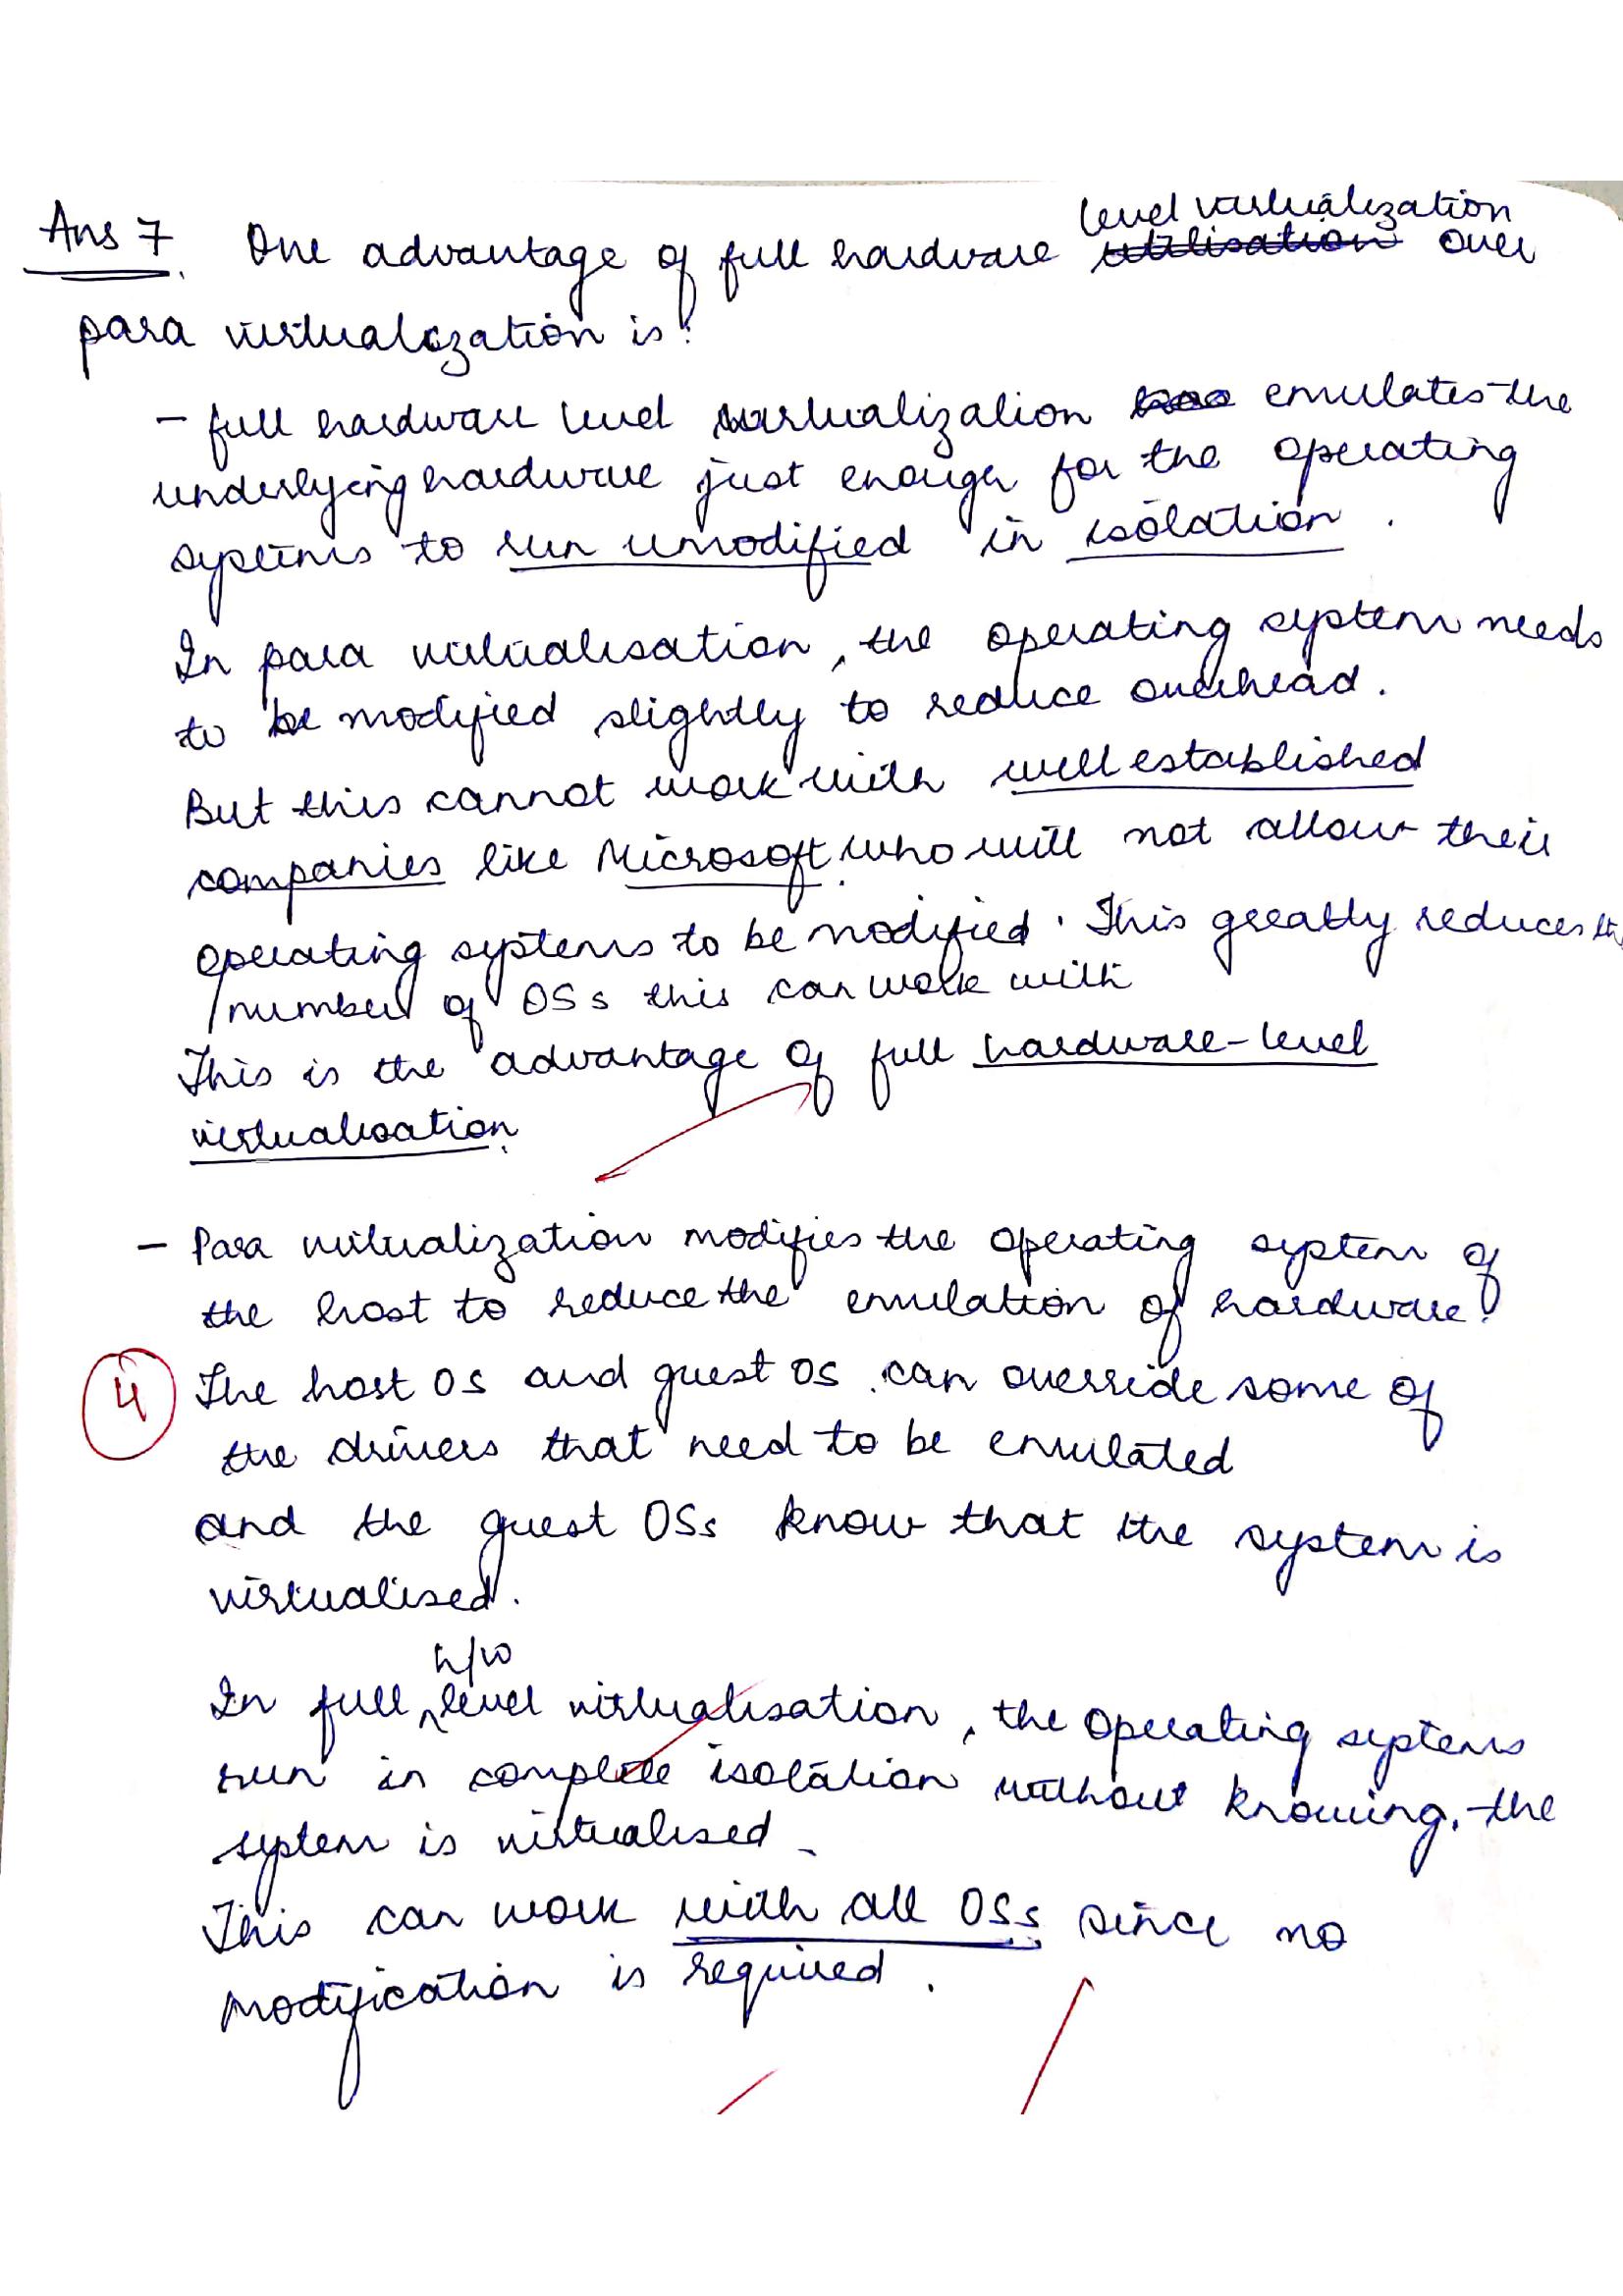 Ans 7. One advantage of full hardware level virtualization over
para virtualization is:
- full hardware level virtualization emulates the
underlying hardware just enough for the operating
systems to run umodified in isolation.
In para virtualisation, the operating system needs
to be modified slightly to reduce overhead.
But this cannot work with well established
companies like Microsoft who will not allow their
operating systems to be modified. This greatly reduces the
number of OSs this can work with
This is the advantage of full hardware-level
virtualisation.
- Para virtualization modifies the operating system of
the host to reduce the emulation of hardware.
4 The host OS and guest OS can override some of
the drivers that need to be emulated
and the guest OSs know that the system is
virtualised.
In full h/w level virtualisation, the operating systems
run in complete isolation without knowing, the
system is virtualised.
This can work with all OSs since no
modification is required.